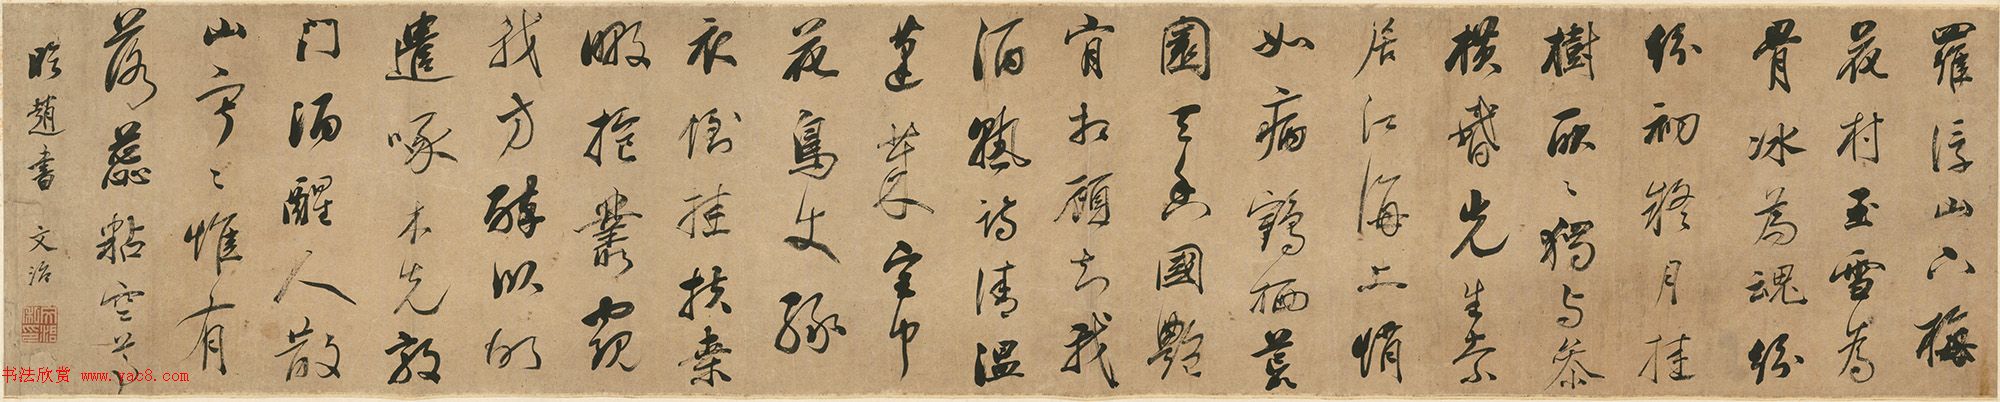 羅浮山下梅
花村玉雪為
骨冰為魂紛
紛初疑月挂
樹耿〻獨與參
橫昏先生索
居江海上悄
如病鶴栖荒
園天香國艷
肯相顧知我
酒熟詩清溫
蓬萊宮中
花鳥使綠
衣倒挂扶桑
暾抱叢窺
我方醉臥故
遣啄木先敲
門酒醒人散
山寂〻惟有
落蕊粘空尊
臨趙書 文治
书法欣赏 www.yac8.com